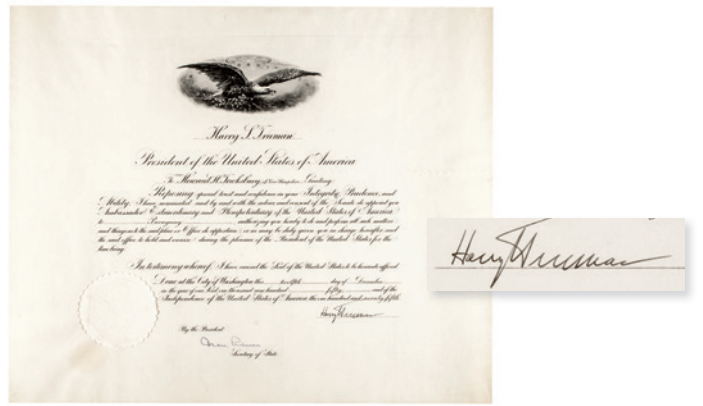 Harry S. Truman
President of the United States of America
To Howard H. Tewksbury, of New Hampshire, Greeting:
Reposing special trust and confidence in your Integrity, Prudence, and
Ability, I have nominated and by and with the advice and consent of the Senate do appoint you
Ambassador Extraordinary and Plenipotentiary of the United States of America
to Paraguay authorizing you hereby to do and perform all such matters
and things as to the said place or Office do appertain, or as may be duly given you in charge hereafter, and
the said office to hold and exercise during the pleasure of the President of the United States for the
time being.
In testimony whereof, I have caused the Seal of the United States to be hereunto affixed.
Done at the City of Washington this twelfth day of December
in the year of our Lord one thousand nine hundred fifty and of the
Independence of the United States of America the one hundred and seventy-fifth.
Harry S Truman
By the President:
Dean Acheson
Secretary of State
Harry S Truman